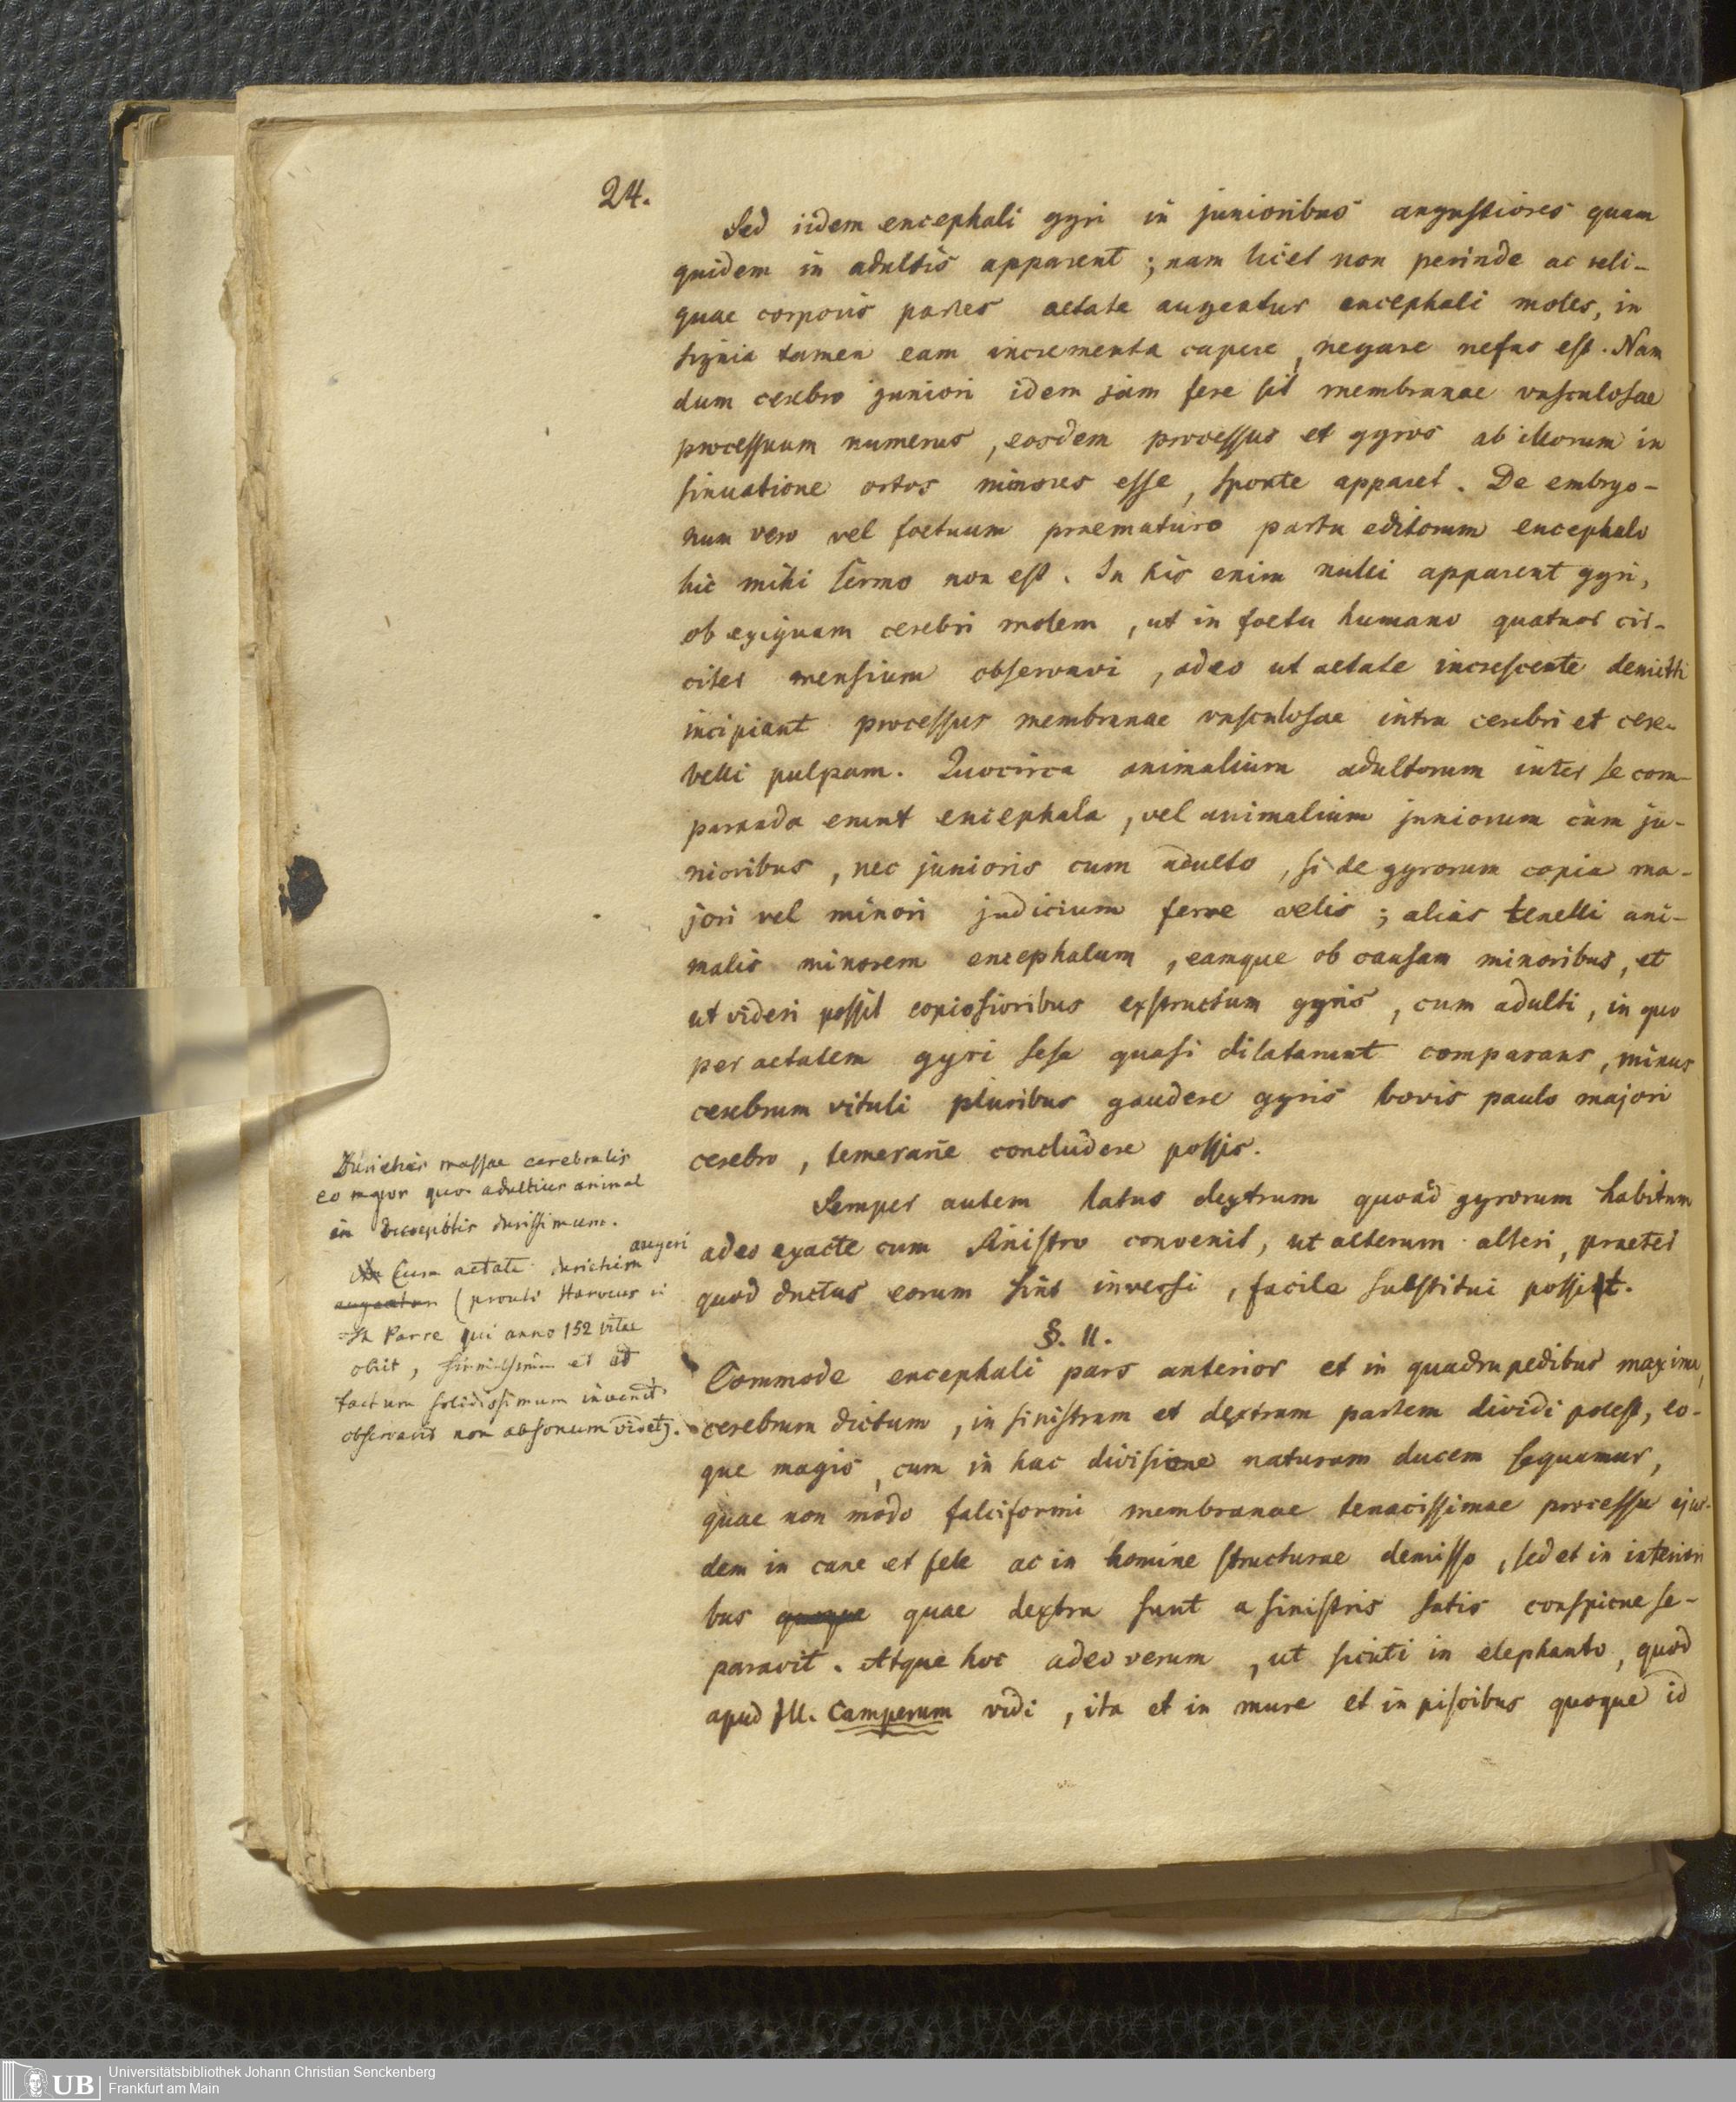 24.
Sed iidem encephali gyri in junioribus angustiores quam
quidem in adultis apparent; nam licet non perinde ac reli-
quae corporis partes aetate augeatur encephali moles, in
signia tamen eam incrementa capere, negare nefas est. Nam
dum cerebro juniori idem jam fere sit membranae vasculosae
processuum numerus, eosdem processus et gyros ab illorum in
sinuatione ortos minores esse, sponte apparet. De embryo-
num vero vel foetuum praematuro partu editorum encephalo
hic mihi sermo non est. In his enim nulli apparent gyri,
ob exiguam cerebri molem, ut in foetu humano quatuor cir-
citer mensium observavi, adeo ut aetate increscente demitti
incipiant processus membranae vasculosae intra cerebri et cere-
belli pulpam. Quocirca animalium adultorum inter se com-
paranda erunt encephala, vel animalium juniorum cum ju-
nioribus, nec junioris cum adulto, si de gyrorum copia ma-
jori vel minori judicium ferre velis; alias tenelli ani-
malis minorem encephalum, eamque ob causam minoribus, et
ut videri possit copiosioribus exstructum gyris, cum adulti, in quo
per aetatem gyri sese quasi dilatarunt comparans, minus
cerebrum vituli pluribus gaudere gyris bovis paulo majori
cerebro, temerarie concludere possis.
Semper autem latus dextrum quoad gyrorum habitum
adeo exacte cum sinistro convenit, ut alterum alteri, praeter
quod ductus eorum sint inversi, facile substitui possit.
§. II.
Commode encephali pars anterior et in quadrupedibus maxima,
cerebrum dictum, in sinistram et dextram partem dividi potest, eo-
que magis, cum in hac divisione naturam ducem sequamur,
quae non modo falciformi membranae tenacissimae processu ejus-
dem in cane et fele ac in homine structurae demisso, sed et in interiori
bus quoque quae dextra sunt a sinistris satis conspicue se-
paravit. Atque hoc adeo verum, ut sicuti in elephanto, quod
apud Ill. Camperum vidi, ita et in mure et in piscibus quoque id
Durities massae cerebralis
eo major quo adultius animal
in decrepitis durissimum.
Cum aetate duritiem augeri
augeatur (prouti Harveus in
Th Parre qui anno 152 vitae
obiit, firmissimum et ad
tactum solidissimum invenit
observavit non absonum videtur).
Universitätsbibliothek Johann Christian Senckenberg
Frankfurt am Main
UB